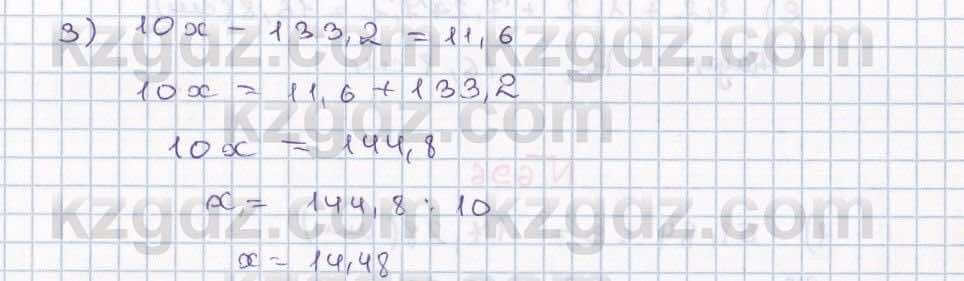 3) 10x - 133,2 = 11,6
10x = 11,6 + 133,2
10x = 144,8
x = 144,8 : 10
x = 14,48
kzgdz.com kzgdz.com
kzgdz.com
kzgdz.com kzgdz.com